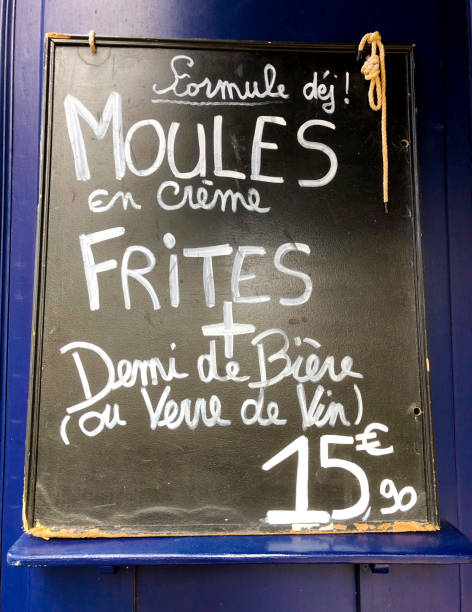 Formule déj!
MOULES
en crème
FRITES
+
Demi de Bière
(ou Verre de Vin)
15€,90